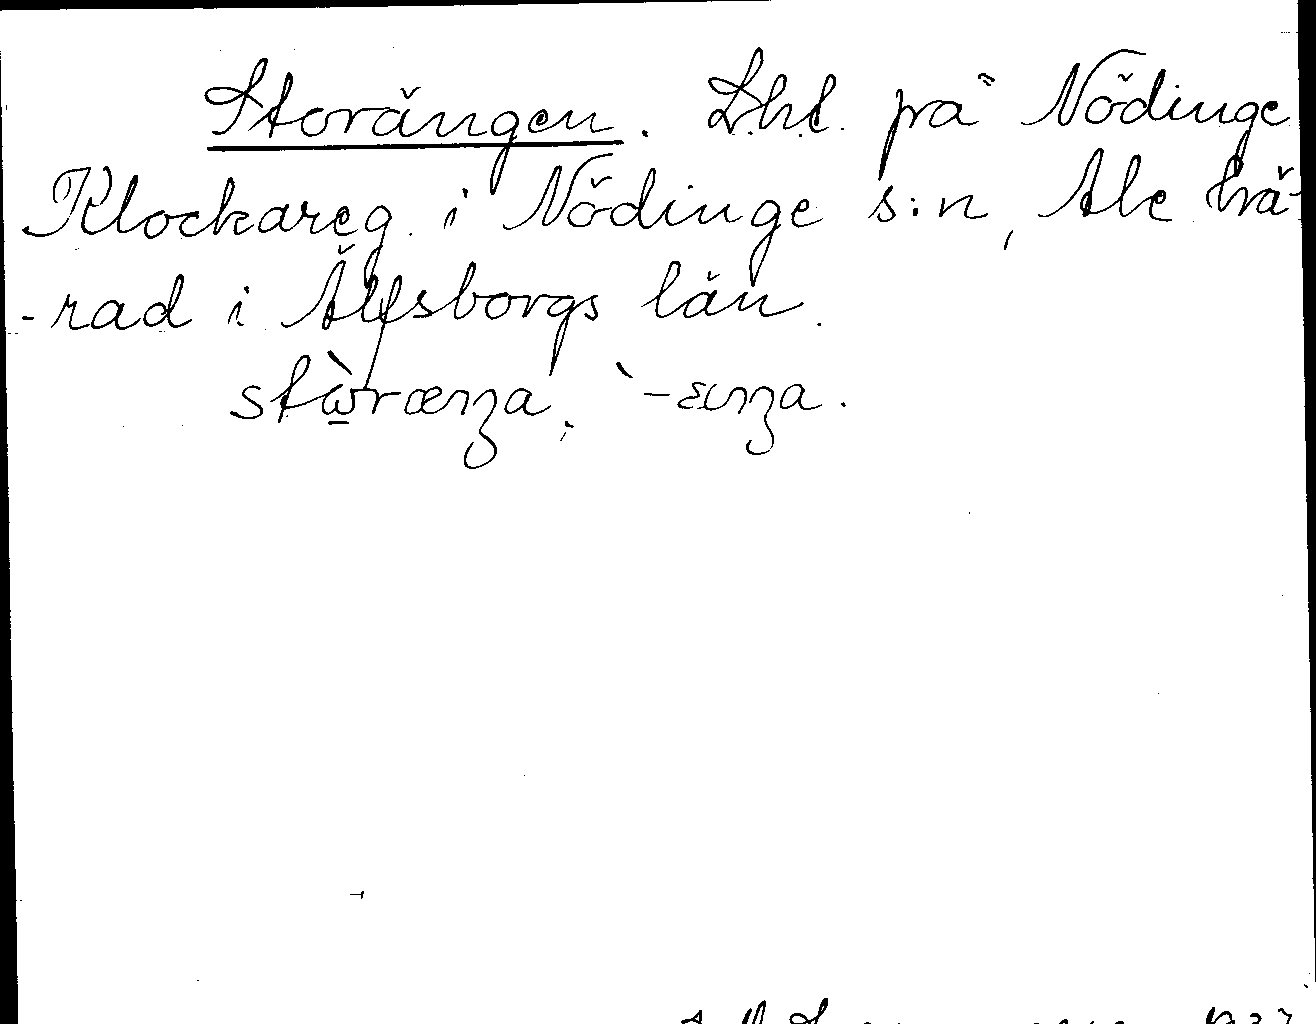 Storängen. L.h.t. på Nödinge
Klockareg. i Nödinge s:n, Ale hä-
-rad i Älfsborgs län.